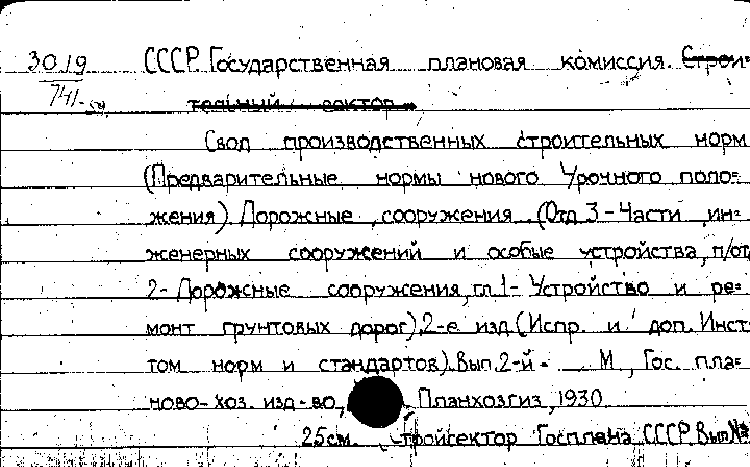 30 19 СССР. Государственная плановая комиссия. Строи=
741-59 тельный сектор.
Свод производственных строительных норм
(Предварительные нормы нового Урочного поло=
жения). Дорожные сооружения. (Отд. 3-Части ин=
женерных сооружений и особые устройства, п/от
2-Дорожные сооружения, гл. 1-Устройство и ре=
монт грунтовых дорог). 2-е изд. (Испр. и доп. Инст
том норм и стандартов). Вып. 2-й - М, Гос. пла=
ново-хоз. изд-во, Планхозгиз, 1930
25см. тройсектор Госплана СССР. Вып №